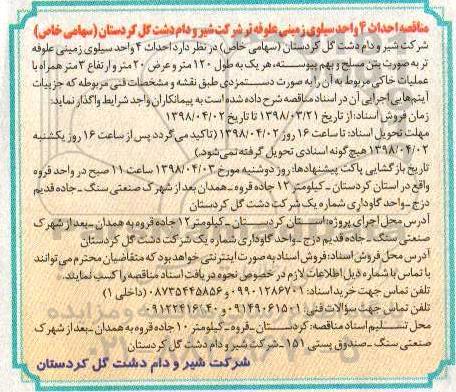 مناقصه احداث ۴ واحد سیلوی زمینی علوفه تر شرکت شیر و دام دشت گل کردستان (سهامی خاص)
شرکت شیر و دام دشت گل کردستان (سهامی خاص) در نظر دارد احداث ۴ واحد سیلوی زمینی علوفه
تر به صورت بتن مسلح و بهم پیوسته، هر یک به طول ۱۲۰ متر و عرض ۲۰ متر و ارتفاع ۳ متر همراه با
عملیات خاکی مربوط به آن را به صورت دستمزدی طبق نقشه و مشخصات فنی مربوطه که جزییات
آیتم هایی اجرایی آن در اسناد مناقصه شرح داده شده است به پیمانکاران واجد شرایط واگذار نماید:
زمان فروش اسناد: از تاریخ ۱۳۹۸/۰۳/۲۱ تا تاریخ ۱۳۹۸/۰۴/۰۲
مهلت تحویل اسناد: تا ساعت ۱۶ روز ۱۳۹۸/۰۴/۰۲ (تاکید می گردد پس از ساعت ۱۶ روز یکشنبه
۱۳۹۸/۰۴/۰۲ هیچ گونه اسنادی تحویل گرفته نمی شود.)
تاریخ بازگشایی پاکت پیشنهادها: روز دوشنبه مورخ ۱۳۹۸/۰۴/۰۳ ساعت ۱۱ صبح در واحد قروه
واقع در استان کردستان - کیلومتر ۱۲ جاده قروه - همدان بعد از شهرک صنعتی سنگ - جاده قدیم
دزج - واحد گاوداری شماره یک شرکت دشت گل کردستان
آدرس محل اجرای پروژه: استان کردستان - کیلومتر ۱۲ جاده قروه به همدان - بعد از شهرک
صنعتی سنگ - جاده قدیم دزج - واحد گاوداری شماره یک شرکت دشت گل کردستان
آدرس محل فروش اسناد: فروش اسناد به صورت اینترنتی خواهد بود که متقاضیان محترم می توانند
با تماس با شماره ذیل اطلاعات لازم در خصوص نحوه دریافت اسناد مناقصه را کسب نمایند.
تلفن تماس جهت خرید اسناد: ۰۹۹۰۱۲۸۶۷۰۱ و ۰۸۷۳۵۴۴۵۸۵۶ (داخلی ۱)
تلفن تماس جهت سؤالات فنی: ۰۹۱۴۹۰۶۱۵۰۱ و ۰۹۱۲۲۴۱۶۲۴۰
محل تسلیم اسناد مناقصه: کردستان - قروه - کیلومتر ۱۰ جاده قروه به همدان - بعد از شهرک
صنعتی سنگ - صندوق پستی ۱۵۱ - شرکت شیر و دام دشت گل کردستان
شرکت شیر و دام دشت گل کردستان